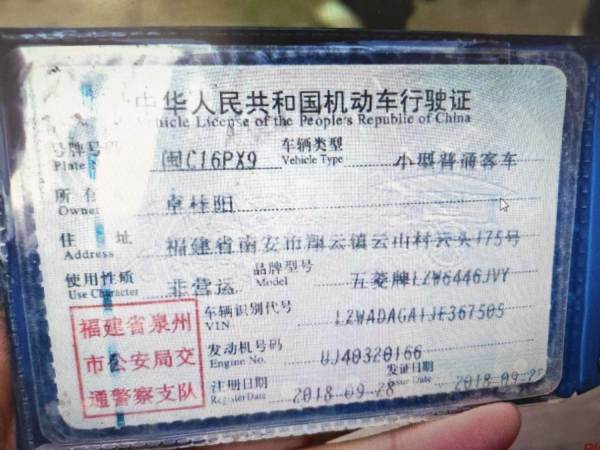 中华人民共和国机动车行驶证
Vehicle License of the People's Republic of China
号牌号码 闽C16PX9 车辆类型 小型普通客车
Plate Vehicle Type
所有 卓桂阳
Owner
住 址 福建省南安市翔云镇云山村云头175号
Address
使用性质 非营运 品牌型号 五菱牌LZW6446JVY
Use Character Model
福建省泉州
市公安局交
通警察支队
车辆识别代号 LZWADAGA1JE367505
VIN
发动机号码 UJ40320166
Engine No.
注册日期 2018-09-28 发证日期
Register Date